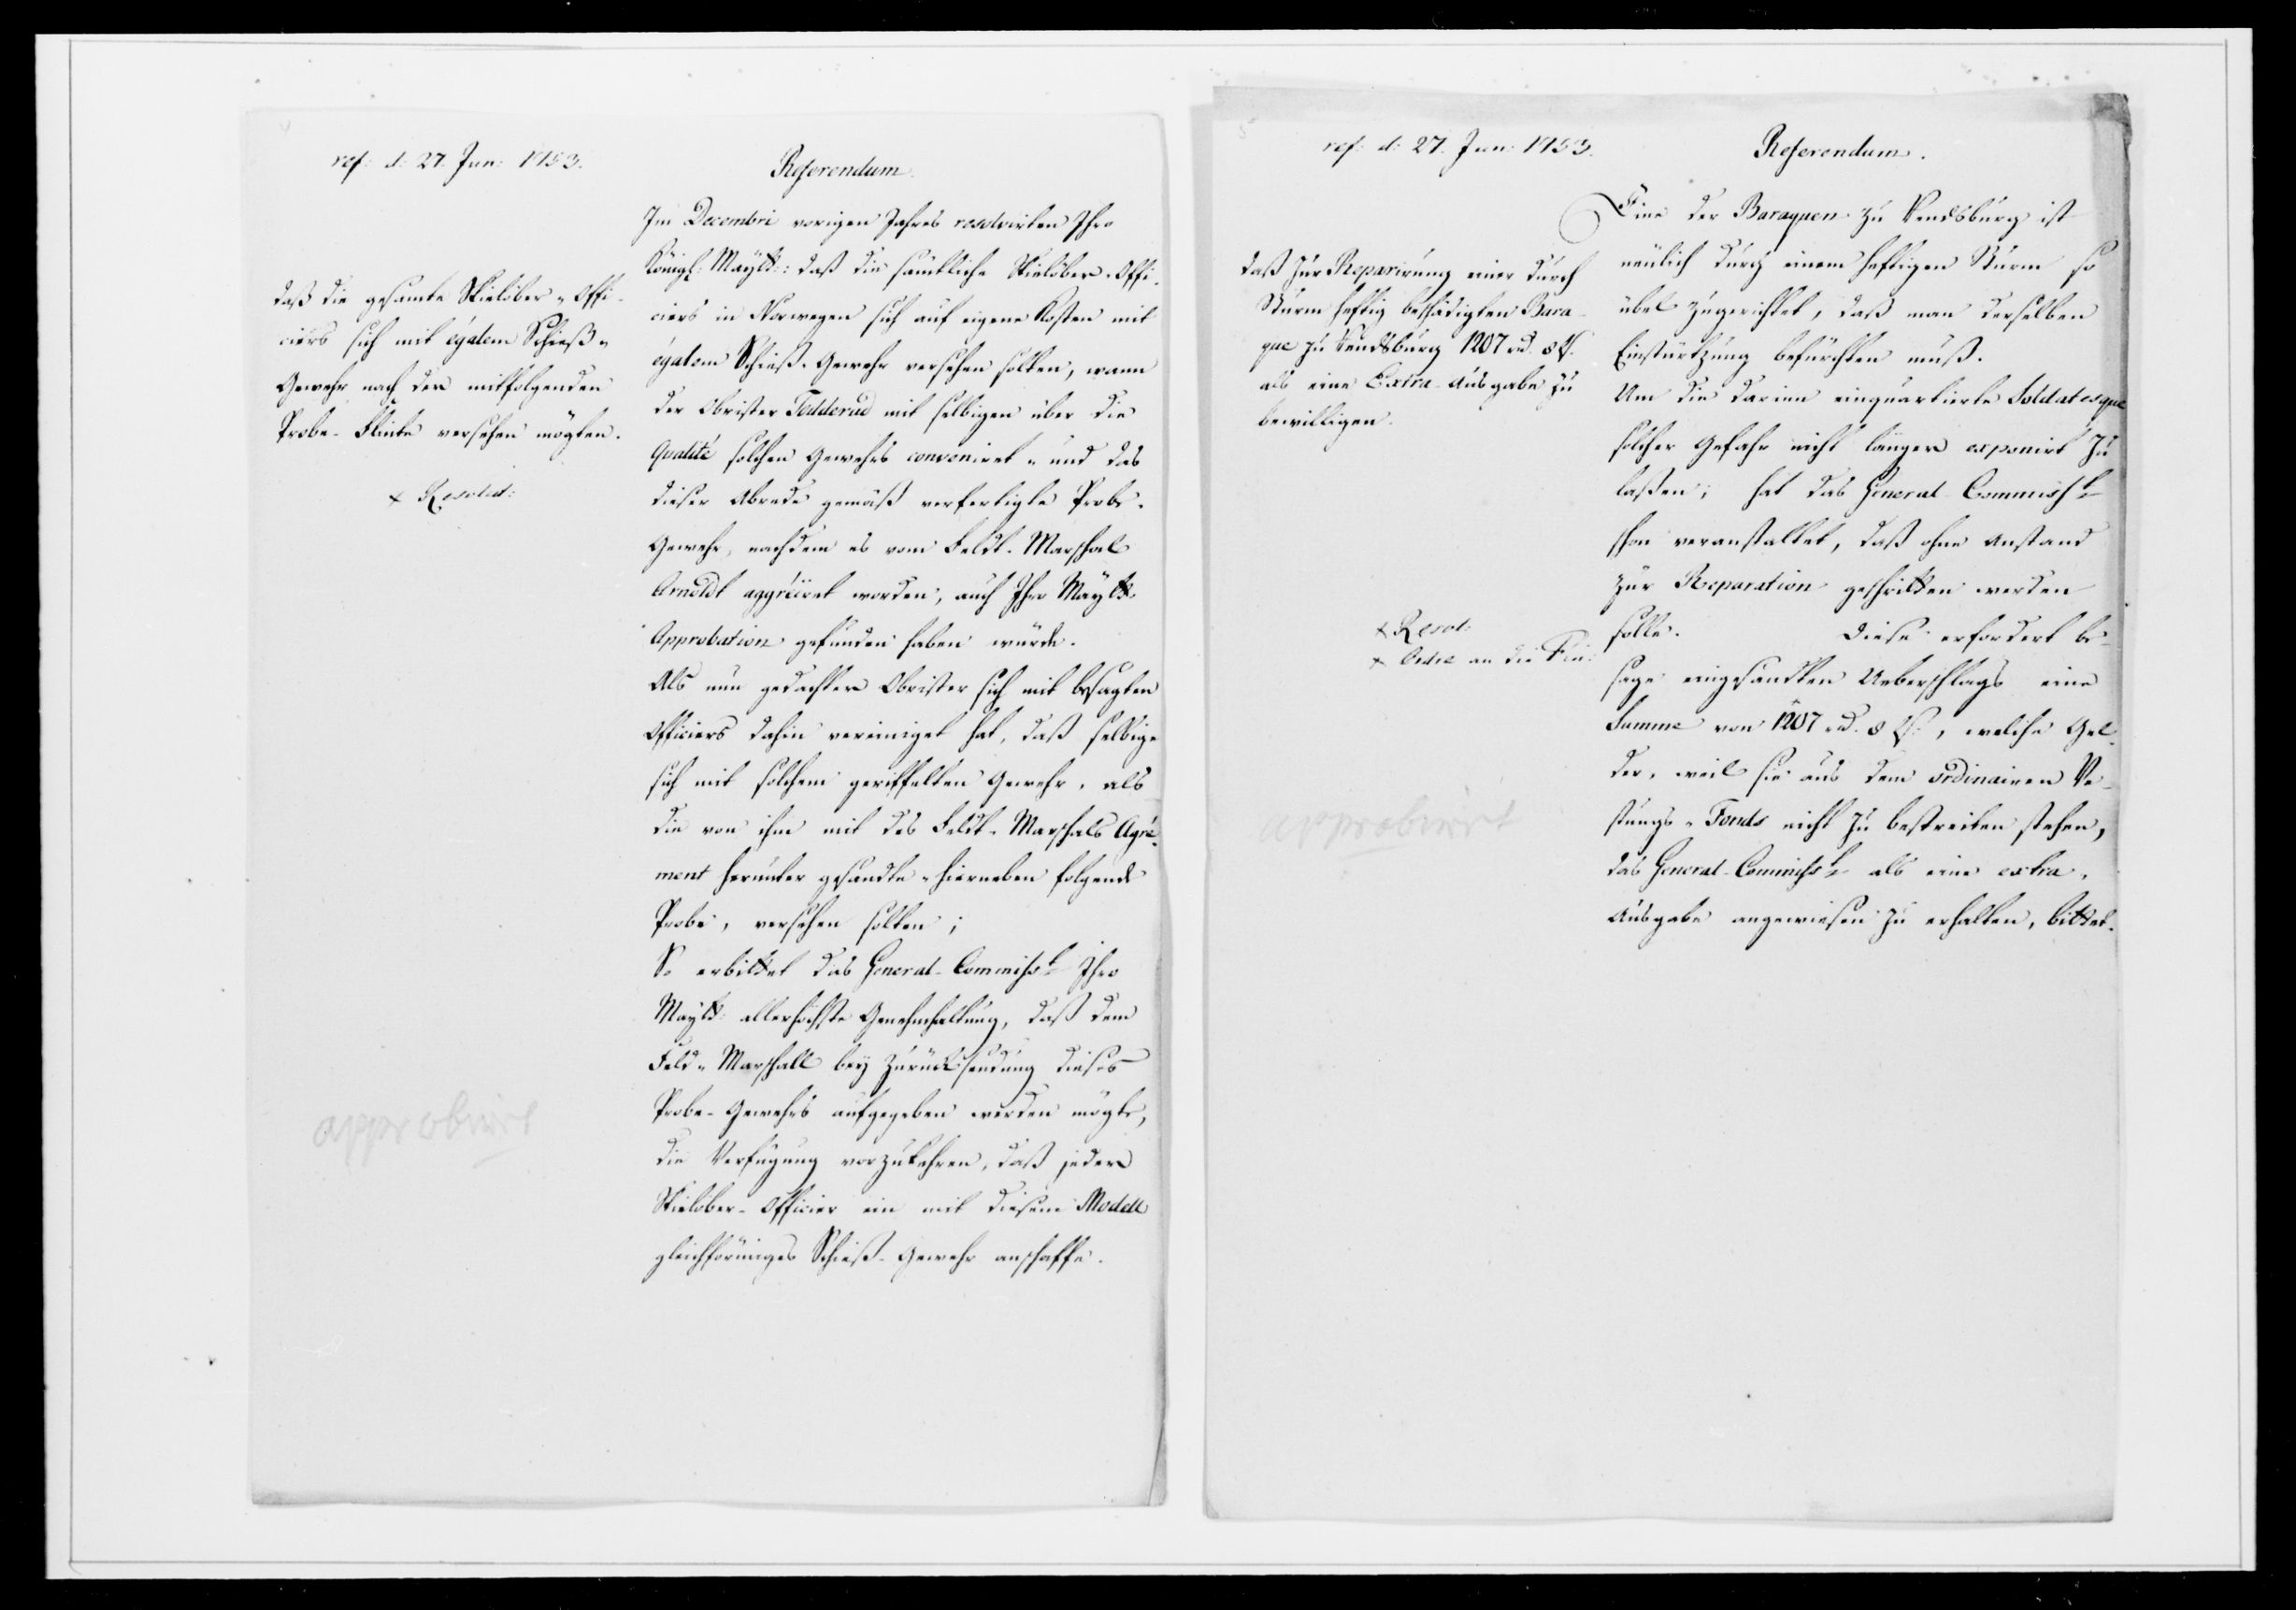 ref: d: 27. Jun: 1753.
Referendum.
daß die gesamte Skielöber-Offi-
ciers sich mit égalem Schieß-
Gewehr nach der mitfolgenden
Probe-Flinte versehen mögten.
x Resolut:
approbirt
Im Decembri vorigen Jahres resolvirten Ihro
Königl: Maytt: daß die sämtliche Skielöber-Offi-
ciers in Norwegen sich auf eigene Kosten mit
égalem Schieß-Gewehr versehen solten, wann
der Obrister Tedderud mit selbigen über die
Qualité solchen Gewehrs conveniret- und das
dieser Abrede gemäß verfertigte Probe-
Gewehr, nachdem es vom Feldt-Marschal
Arnoldt aggréiret worden, auch Ihro Maytt
Approbation gefunden haben würde.
Als nun gedachter Obrister sich mit besagten
Officiers dahin vereiniget hat, daß selbige
sich mit solchem geriffelten Gewehr, als
die von ihm mit des Feldt-Marschals Agré-
ment herunter gesandte- hierneben folgende
Probe, versehen solten;
So erbittet das General-Commisst Ihro
Maytt: allerhöchste Genehmhaltung, daß dem
Feld-Marschall bey Zurücksendung dieses
Probe-Gewehrs aufgegeben werden mögte,
die Verfügung vorzukehren, daß jeder
Skielöber-Officier ein mit diesem Modell
gleichförmiges Schieß-Gewehr anschaffe.
5
ref: d: 27. Jun: 1753.
Referendum.
daß zur Reparirung einer durch
Sturm heftig beschädigten Bara-
que zu Rendsburg 1207 rd. 8 ß.
als eine Extra-Ausgabe zu
bewilligen.
x Resol:
x Ordre an die Fin:
approbirt
Eine der Baraquen zu Rendsburg ist
neulich durch einem heftigen Sturm so
übel zugerichtet, daß man derselben
Einstürtzung befürchten muß.
Um die darinn einquartierte Soldatesque
solcher Gefahr nicht länger exponirt zu
laßen; hat das General-Commisst
schon veranstaltet, daß ohne Anstand
zur Reparation geschritten werden
solle. Diese erfordert be-
sage eingesandten Ueberschlags eine
Summe von 1207 rd. 8 ß., welche Gel-
der, weil sie aus dem ordinairen Ve-
stungs-Fonds nicht zu bestreiten stehen,
das General-Commisst als eine extra-
Ausgabe angewiesen zu erhalten, bittet.